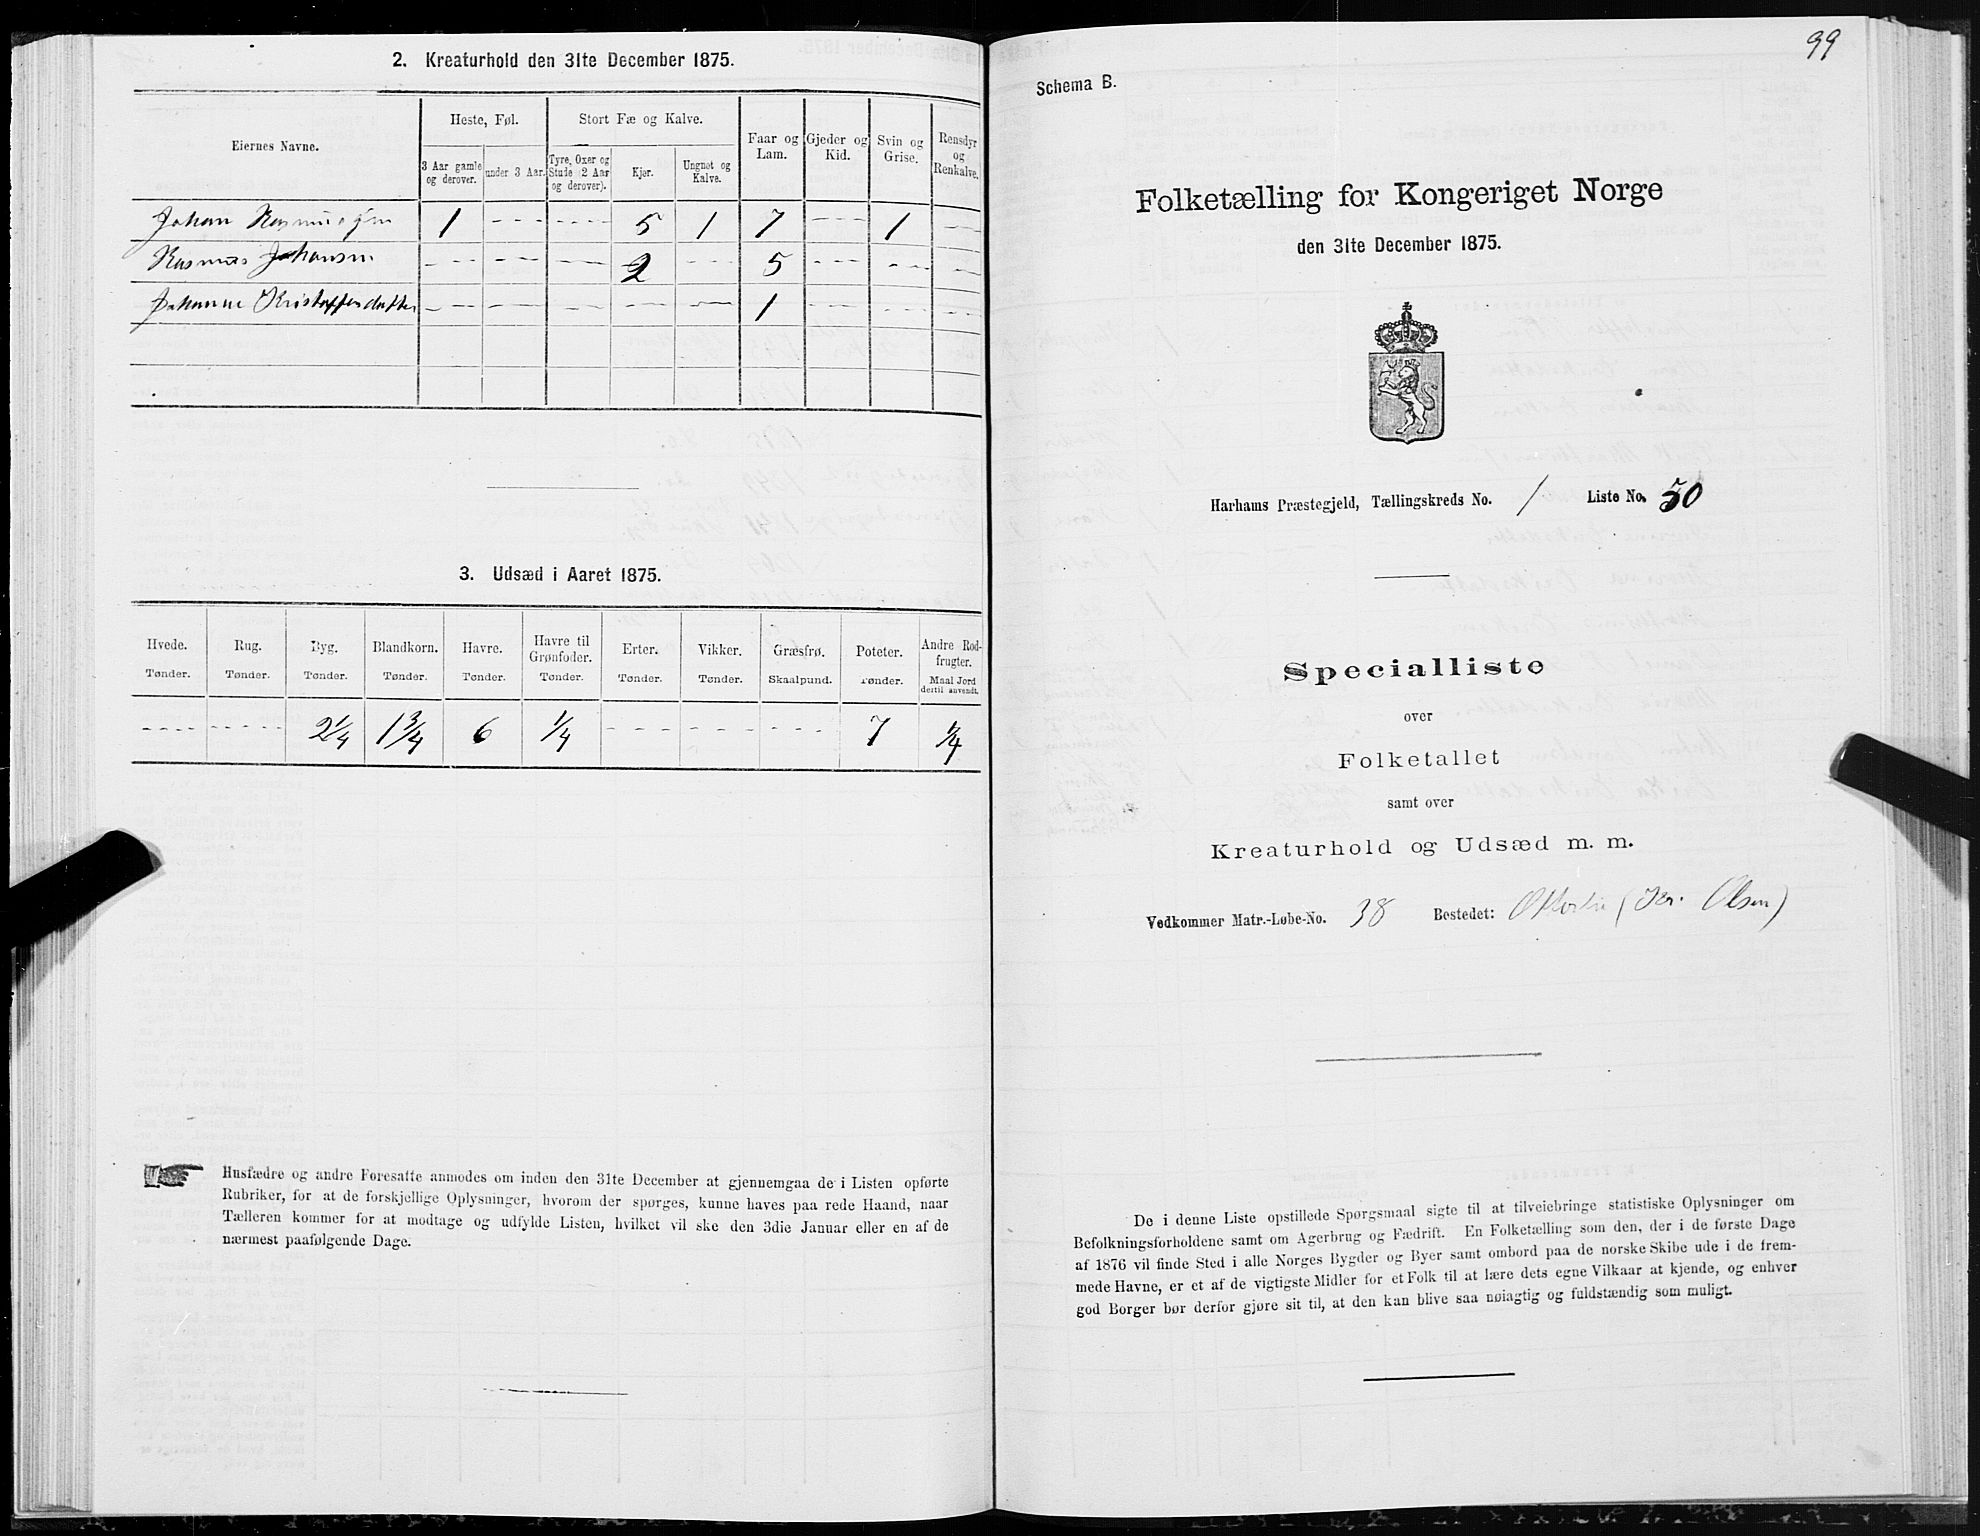 2. Kreaturhold den 31te December 1875.
Eiernes Navne.
Heste, Føl.
Stort Fæ og Kalve.
Faar og Lam.
Gjeder og Kid.
Svin og Grise.
Rensdyr og Renkalve.
3 Aar gamle og derover.
under 3 Aar.
Tyre, Oxer og Stude (2 Aar og derover).
Kjør.
Ungnøt og Kalve.
Johan Rasmussen 1 - - - - - - 5 1 7 - - - 1 - - -
Rasmus Johansen - - - - - - - - - 2 - - - 5 - - - - - - - - -
Johanne Kristoffersdatter - - - - - - - - - - - - - - - 1 - - - - - - - - -
3. Udsæd i Aaret 1875.
Hvede. Rug. Byg. Blandkorn. Havre. Havre til Grønfoder. Erter. Vikker. Græsfrø. Poteter. Andre Rodfrugter.
Tønder. Tønder. Tønder. Tønder. Tønder. Tønder. Tønder. Tønder. Skaalpund. Tønder. Maal Jord dertil anvendt.
- - - - - - - - 2 1/4 1 3/4 6 1/4 - - - - - - - - - - - - 7 1/4
Husfædre og andre Foresatte anmodes om inden den 31te December at gjennemgaa de i Listen opførte
Rubriker, for at de forskjellige Oplysninger, hvorom der spørges, kunne haves paa rede Haand, naar
Tælleren kommer for at modtage og udfylde Listen, hvilket vil ske den 3die Januar eller en af de
nærmest paafølgende Dage.
99
Schema B.
Folketælling for Kongeriget Norge
den 31te December 1875.
Harhams Præstegjeld, Tællingskreds No. 1 Liste No. 50
Specialliste
over
Folketallet
samt over
Kreaturhold og Udsæd m. m.
Vedkommer Matr.-Løbe-No. 38 Bestedet: (Kr. Olsen)
De i denne Liste opstillede Spørgsmaal sigte til at tilveiebringe statistiske Oplysninger om
Befolkningsforholdene samt om Agerbrug og Fædrift. En Folketælling som den, der i de første Dage
af 1876 vil finde Sted i alle Norges Bygder og Byer samt ombord paa de norske Skibe ude i de frem-
mede Havne, er et af de vigtigste Midler for et Folk til at lære dets egne Vilkaar at kjende, og enhver
god Borger bør derfor gjøre sit til, at den kan blive saa nøiagtig og fuldstændig som muligt.